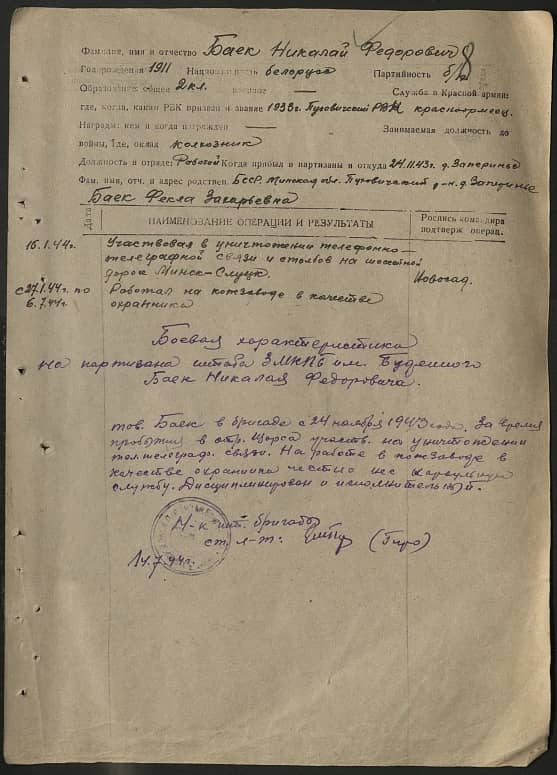 Фамилия, имя и отчество Баек Николай Федорович
8
Год рождения 1911 Национальность белорус Партийность б/п
Образование общее 2 кл. военное — Служба в Красной армии:
где, когда, каким РВК призван и звание 1933г. Пуховичский РВК красноармеец.
Награды: кем и когда награжден — Занимаемая должность до
войны, где, оклад колхозник
Должность в отряде: Рядовой Когда прибыл в партизаны и откуда 24.11.43г. д.
Фам. имя, отч. и адрес родствен. БССР. Минская обл. Пуховичский р-н. д.
Баек Фекла Захарьевна
Дата НАИМЕНОВАНИЕ ОПЕРАЦИИ И РЕЗУЛЬТАТЫ Роспись командира подтверж. операц.
16.1.44г. Участвовал в уничтожении телефонно-
телеграфной связи и столбов на шоссейной
дороге Минск-Слуцк.
с 27.1.44г. по Работал на кожзаводе в качестве
6.7.44г. охранника
Боевая характеристика
на партизана штаба 2МКПБ им. Буденного
Баек Николая Федоровича.
тов. Баек в бригаде с 24 ноября 1943 года. За время
пребывия в отр. Щорса участв. на уничтожении
тел. телеграф. связи. На работе в кожзаводе в
качестве охранника честно нес караульную
службу. Дисциплинирован и исполнительный.
Н-к шт. бригады
ст. л-т:
14.7.44г.